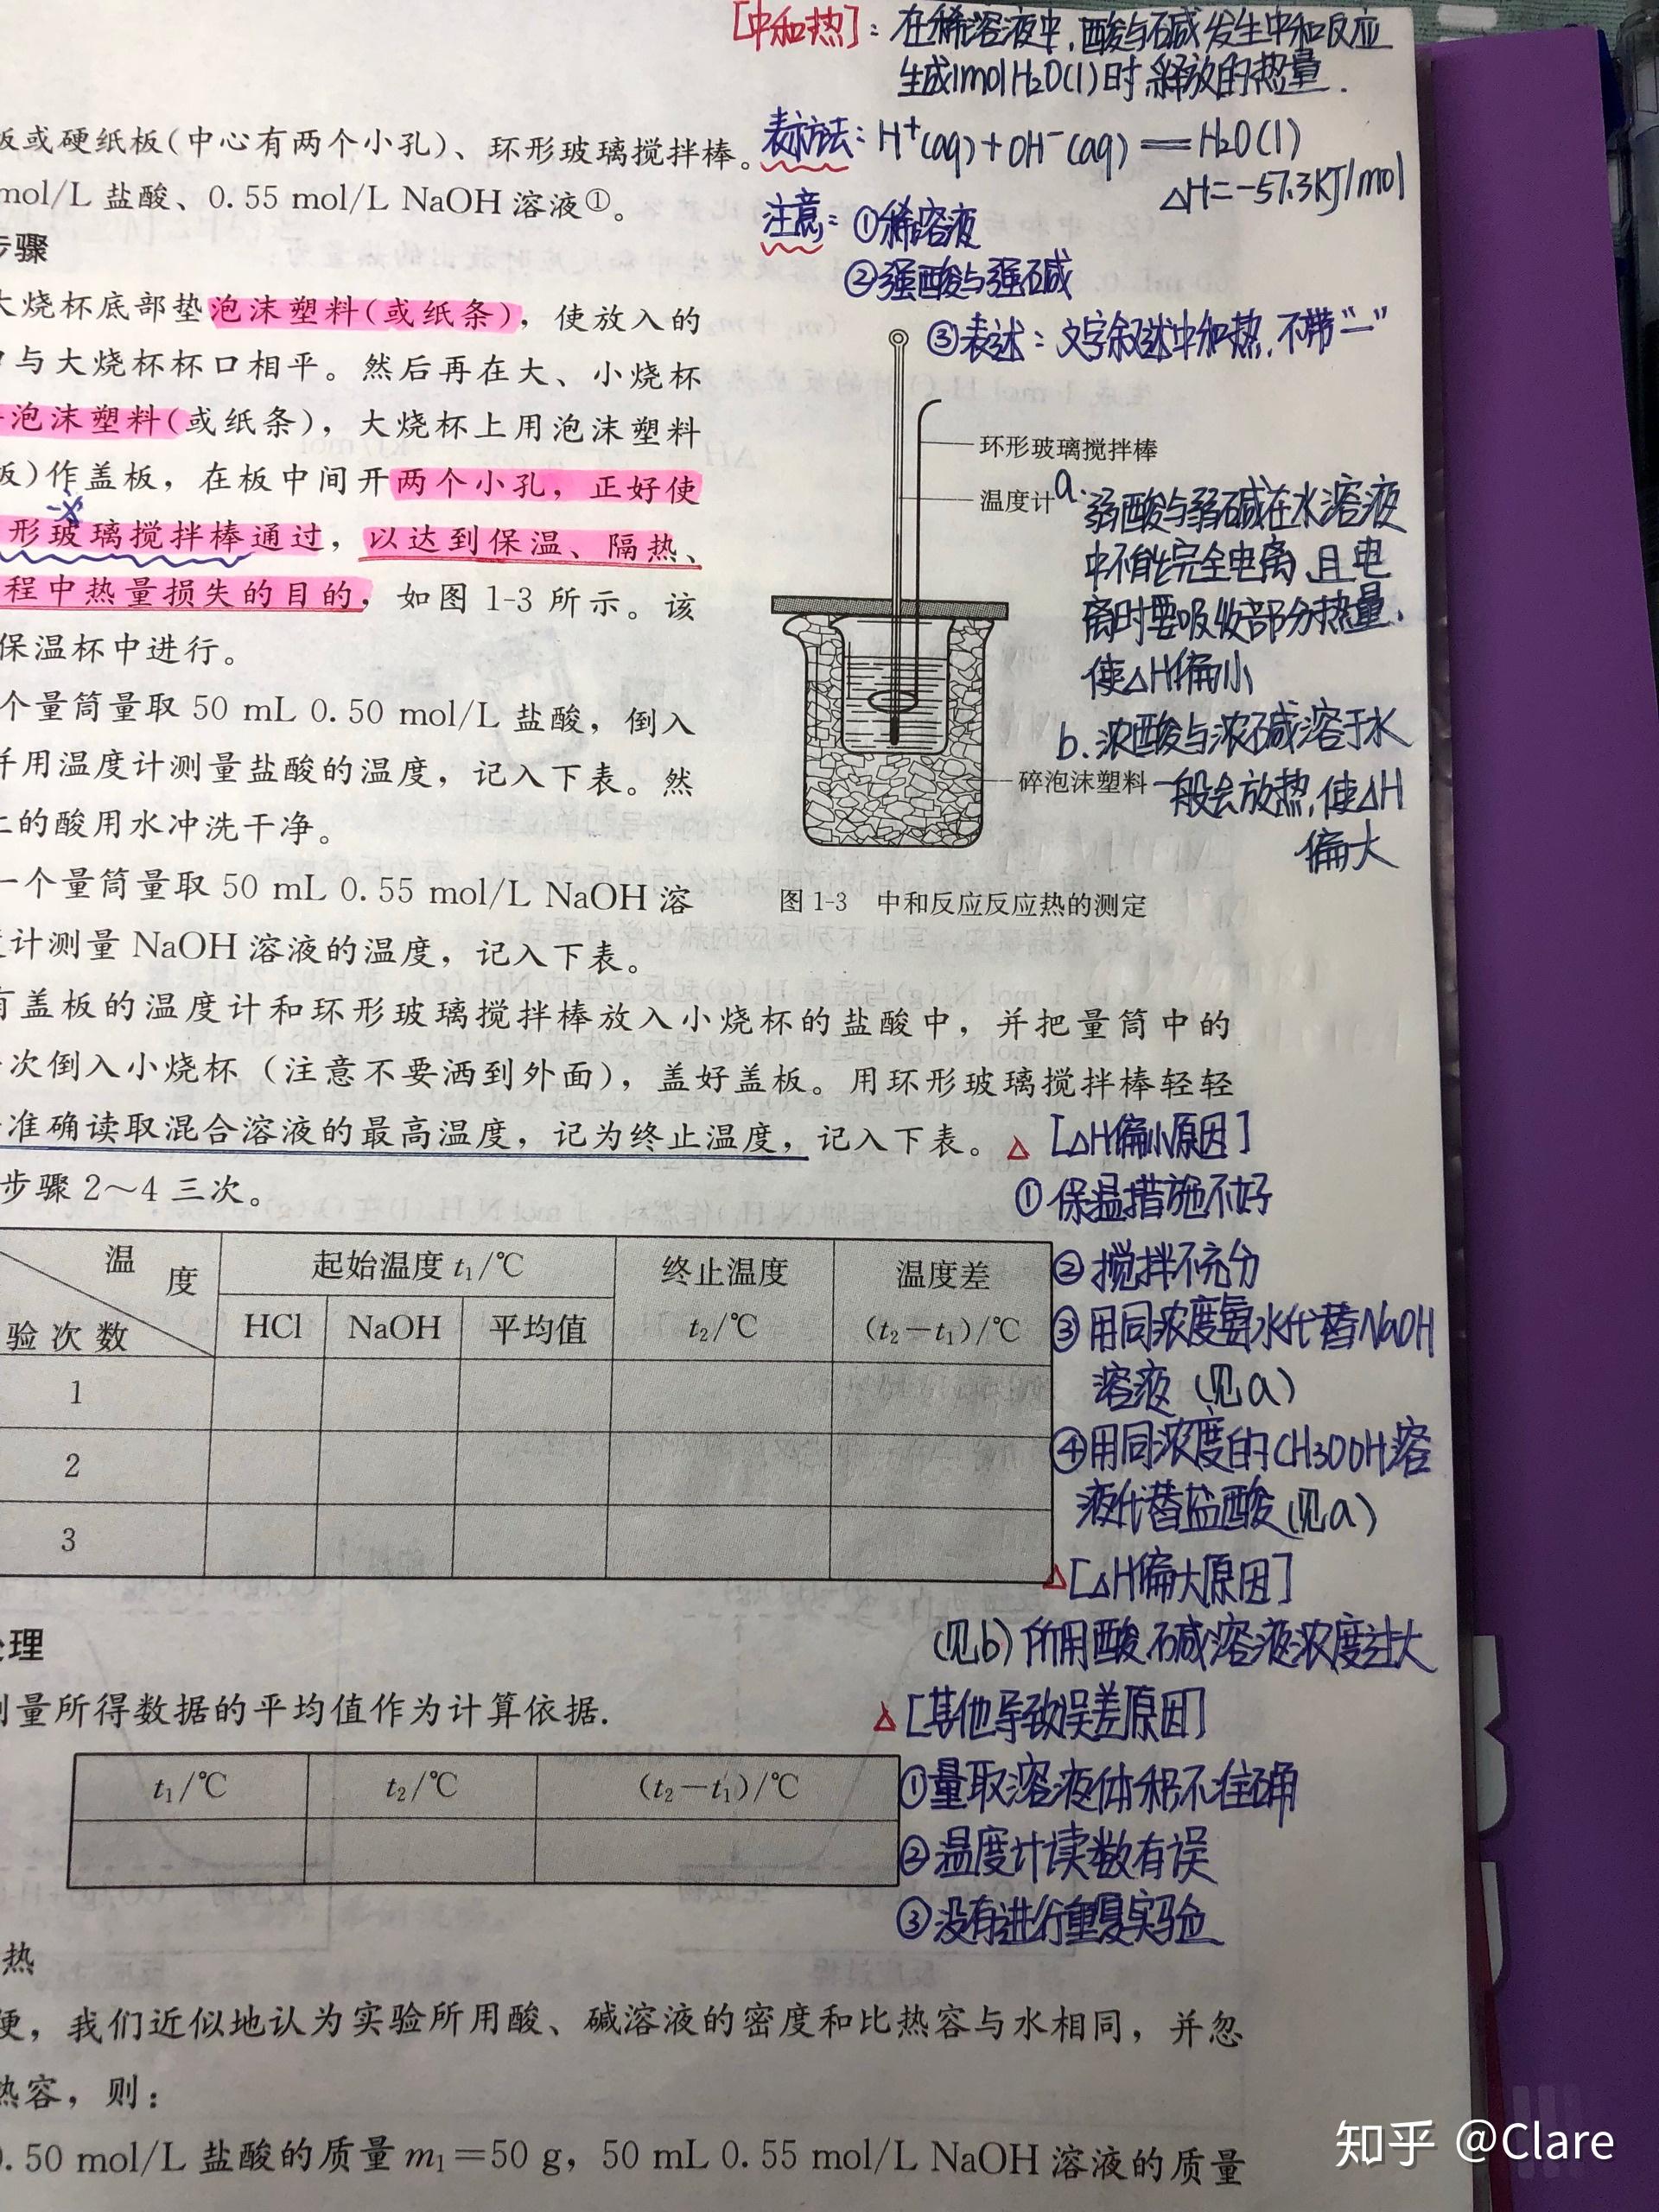 [中和热]：在稀溶液中，酸与碱发生中和反应
生成1molH₂O(l)时释放的热量.
表示方法：H⁺(aq)+OH⁻(aq)══H₂O(l)
△H=-57.3KJ/mol
注意：①稀溶液
②强酸与强碱
③表述：文字叙述中和热，不带“—”
板或硬纸板(中心有两个小孔)、环形玻璃搅拌棒。
mol/L 盐酸、0.55 mol/L NaOH 溶液①。
步骤
大烧杯底部垫泡沫塑料(或纸条)，使放入的
口与大烧杯杯口相平。然后再在大、小烧杯
泡沫塑料(或纸条)，大烧杯上用泡沫塑料
板)作盖板，在板中间开两个小孔，正好使
形玻璃搅拌棒通过，以达到保温、隔热、
程中热量损失的目的，如图 1-3 所示。该
保温杯中进行。
个量筒量取 50 mL 0.50 mol/L 盐酸，倒入
并用温度计测量盐酸的温度，记入下表。然
上的酸用水冲洗干净。
一个量筒量取 50 mL 0.55 mol/L NaOH 溶
度计测量 NaOH 溶液的温度，记入下表。
环形玻璃搅拌棒
温度计
碎泡沫塑料
图 1-3 中和反应反应热的测定
a.弱酸与弱碱在水溶液
中不能完全电离，且电
离时要吸收部分热量，
使△H偏小
b.浓酸与浓碱溶于水
一般会放热，使△H
偏大
有盖板的温度计和环形玻璃搅拌棒放入小烧杯的盐酸中，并把量筒中的
次倒入小烧杯（注意不要洒到外面），盖好盖板。用环形玻璃搅拌棒轻轻
准确读取混合溶液的最高温度，记为终止温度，记入下表。
步骤 2～4 三次。
△[△H偏小原因]
①保温措施不好
②搅拌不充分
③用同浓度氨水代替NaOH
溶液（见a）
④用同浓度的CH3OOH溶
液代替盐酸(见a)
温度
验次数
起始温度 t₁/℃
终止温度
t₂/℃
温度差
(t₂－t₁)/℃
HCl NaOH 平均值
1
2
3
△[△H偏大原因]
(见b)所用酸、碱溶液浓度过大
△[其他导致误差原因]
①量取溶液体积不准确
②温度计读数有误
③没有进行重复实验
处理
测量所得数据的平均值作为计算依据.
t₁/℃ t₂/℃ (t₂－t₁)/℃
热
便，我们近似地认为实验所用酸、碱溶液的密度和比热容与水相同，并忽
热容，则：
0.50 mol/L 盐酸的质量 m₁＝50 g，50 mL 0.55 mol/L NaOH 溶液的质量
知乎 @Clare